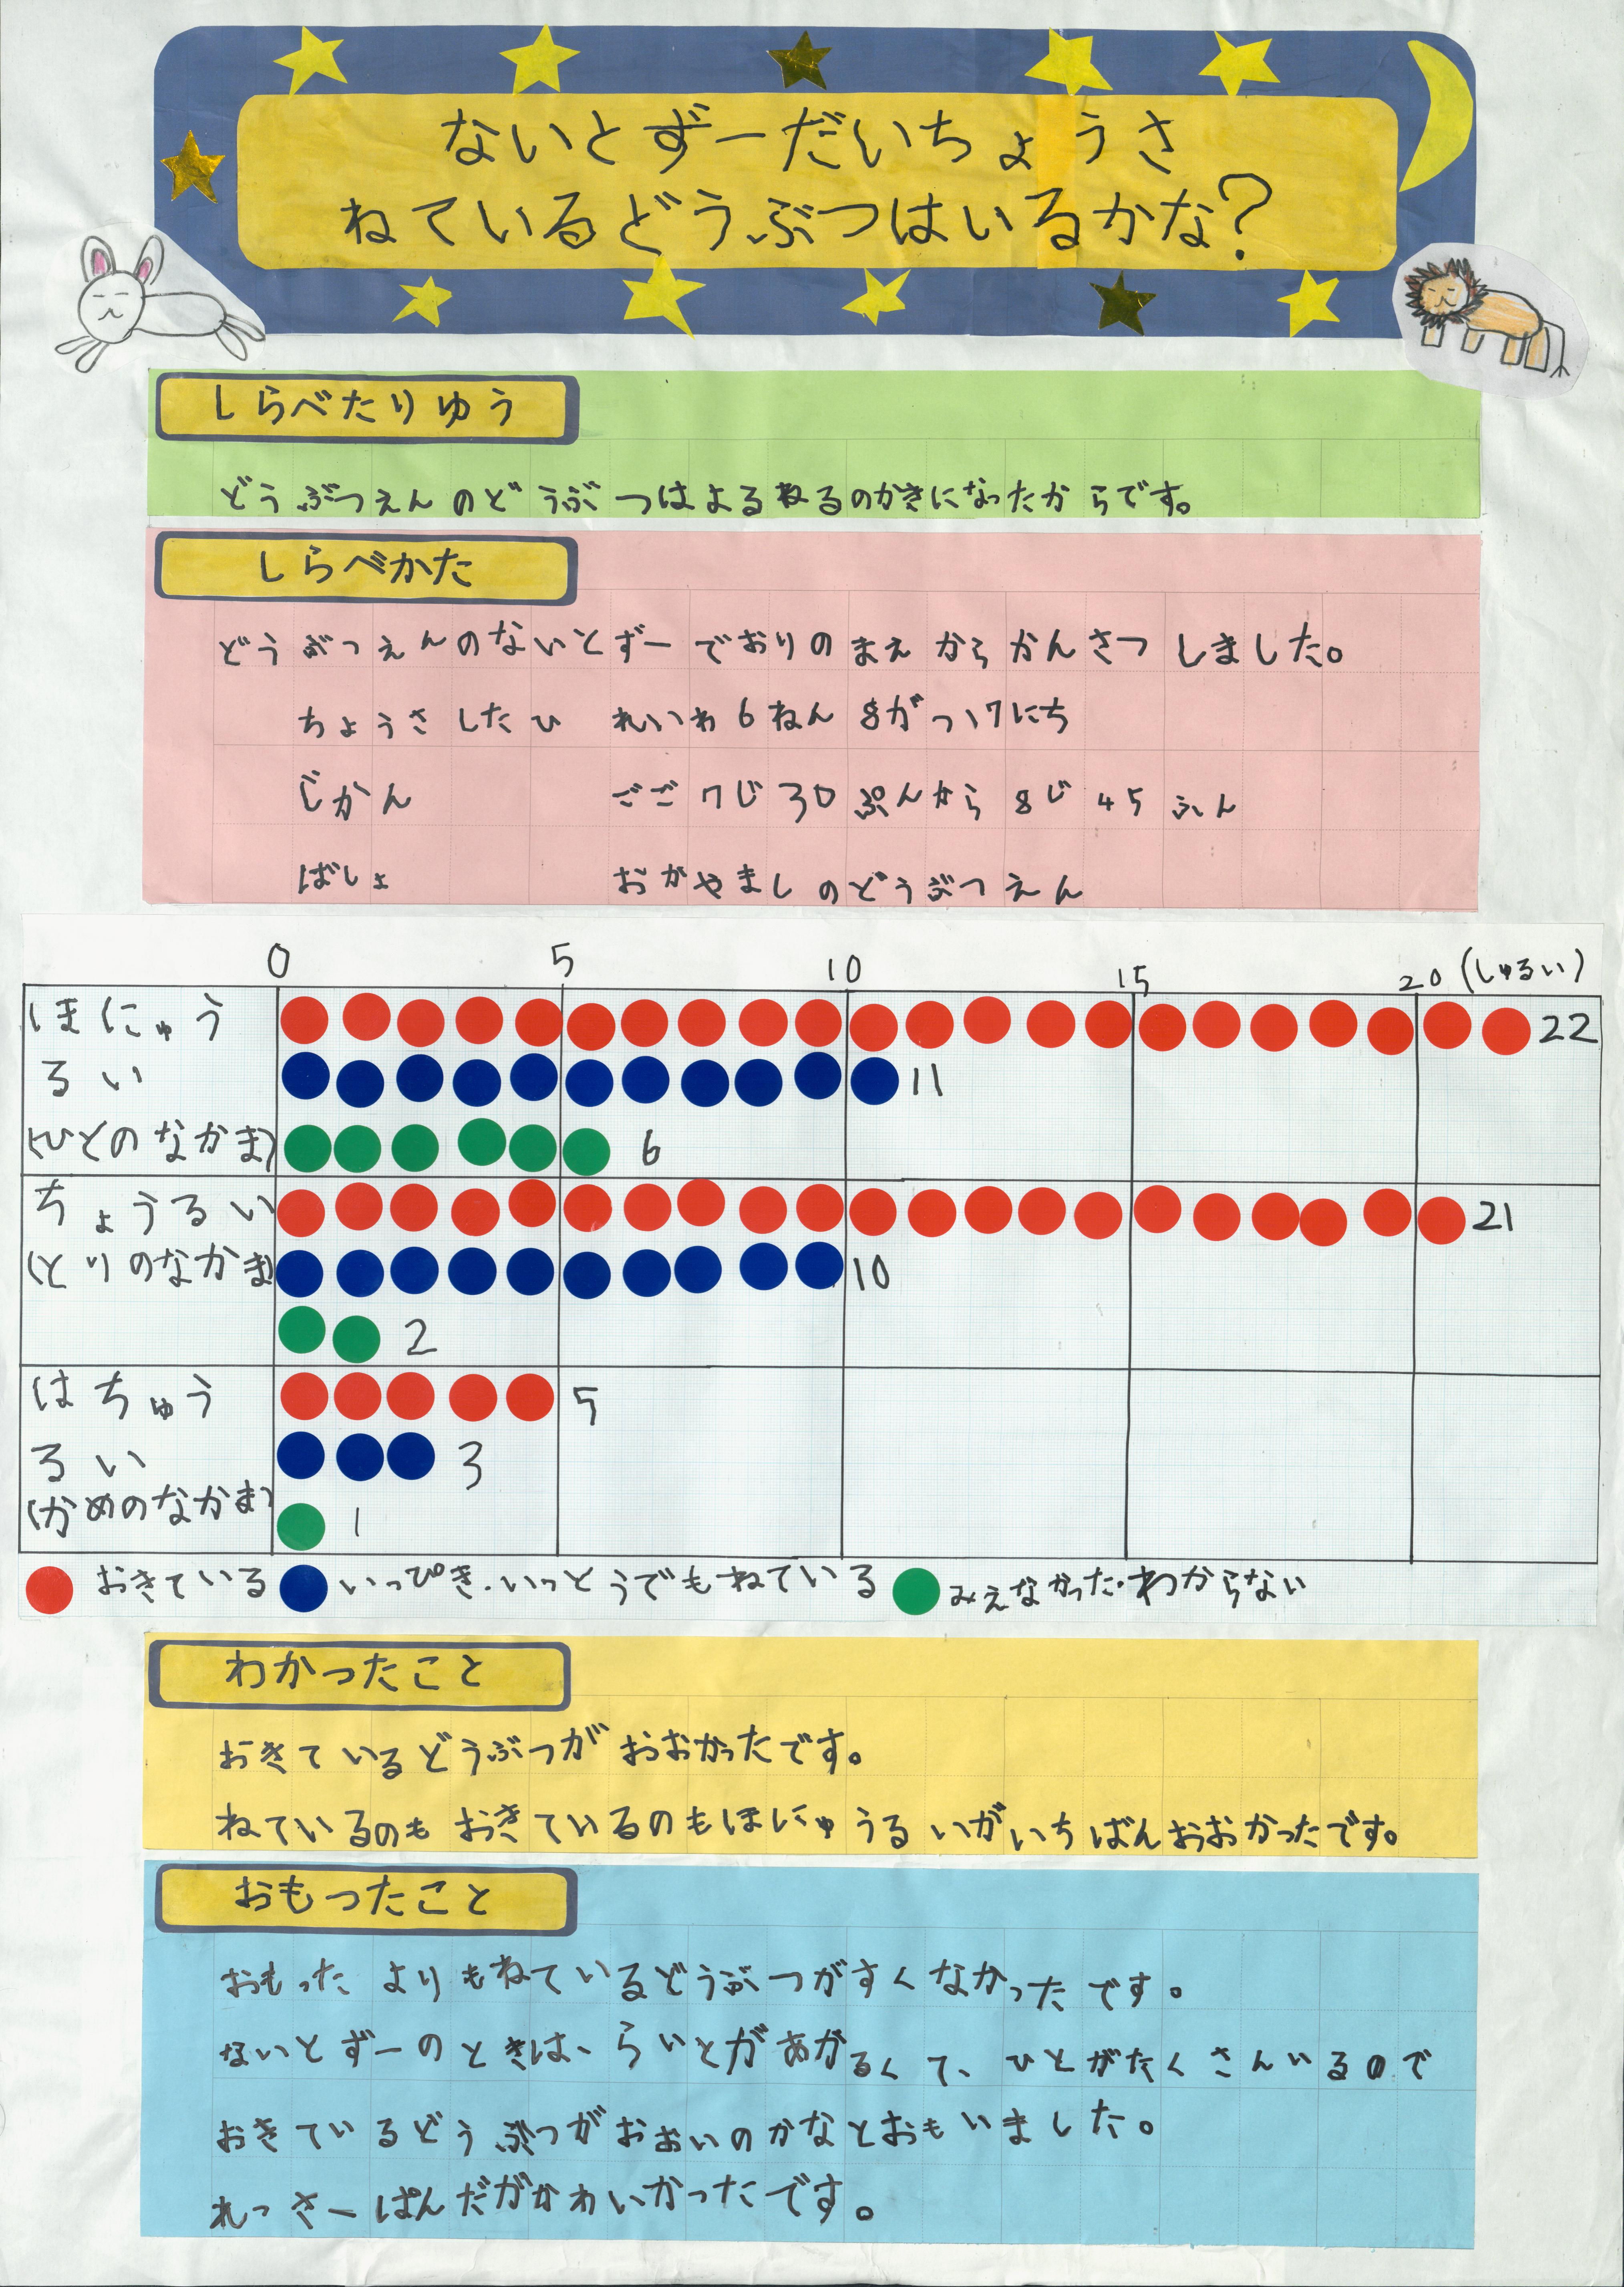 ないとずーだいちょうさ
ねているどうぶつはいるかな?
しらべたりゆう
どうぶつえんのどうぶつはよるねるのかきになったからです。
しらべかた
どうぶつえんのないとずーでおりのまえからかんさつしました。
ちょうさしたひ れいわ6ねん8がつ17にち
じかん ごご7じ30ぷんから8じ45ふん
ばしょ おかやましのどうぶつえん
0 5 10 15 20 (しゅるい)
ほにゅう 22
るい 11
(ひとのなかま) 6
ちょうるい 21
(とりのなかま) 10
2
はちゅう 5
るい 3
(かめのなかま) 1
おきている いっぴき・いっとうでもねている みえなかった・わからない
わかったこと
おきているどうぶつがおおかったです。
ねているのもおきているのもほにゅうるいがいちばんおおかったです。
おもったこと
おもったよりもねているどうぶつがすくなかったです。
ないとずーのときは、らいとがあかるくて、ひとがたくさんいるので
おきているどうぶつがおおいのかなとおもいました。
れっさーぱんだがかわいかったです。